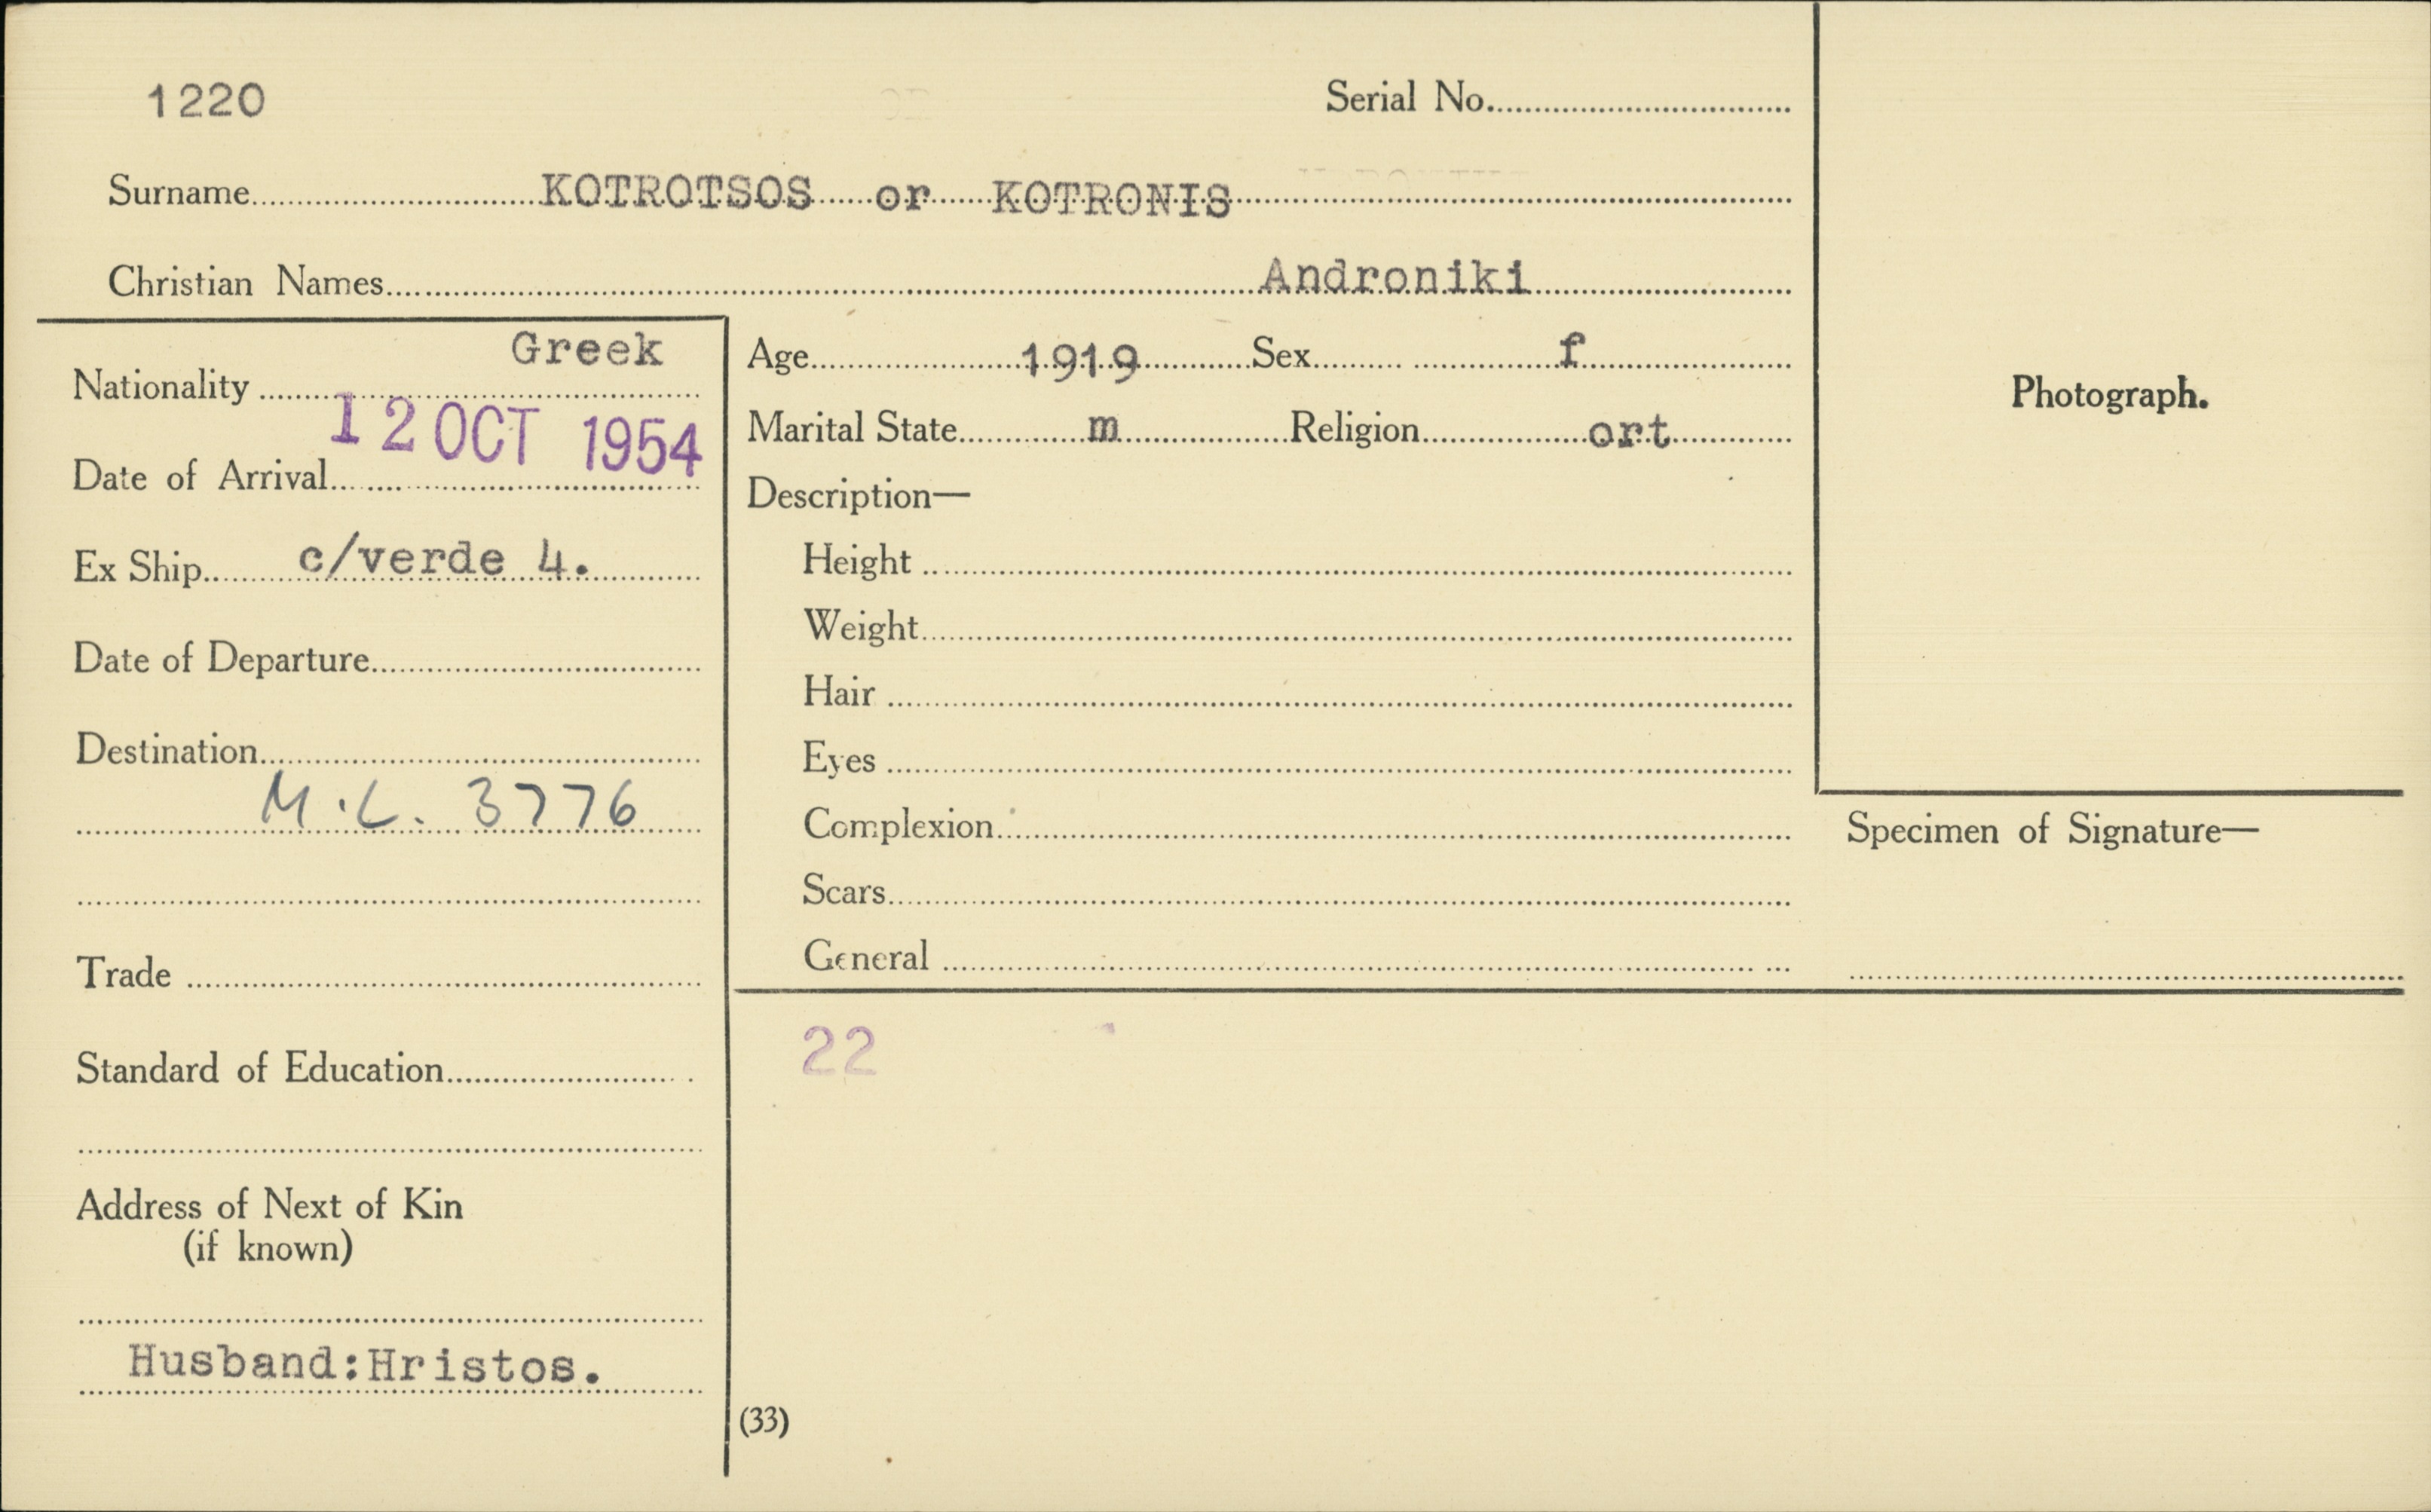 1220
Serial No.
Surname KOTROTSOS or KOTRONIS
Christian Names Androniki
Greek
Nationality
12 OCT 1954
Date of Arrival
Ex Ship c/verde 4.
Date of Departure
Destination
M.L. 3776
Trade
Standard of Education
Address of Next of Kin
(if known)
Husband:Hristos.
Age 1919 Sex f
Marital State m Religion ort
Description—
Height
Weight
Hair
Eyes
Complexion
Scars
General
22
(33)
Photograph.
Specimen of Signature—